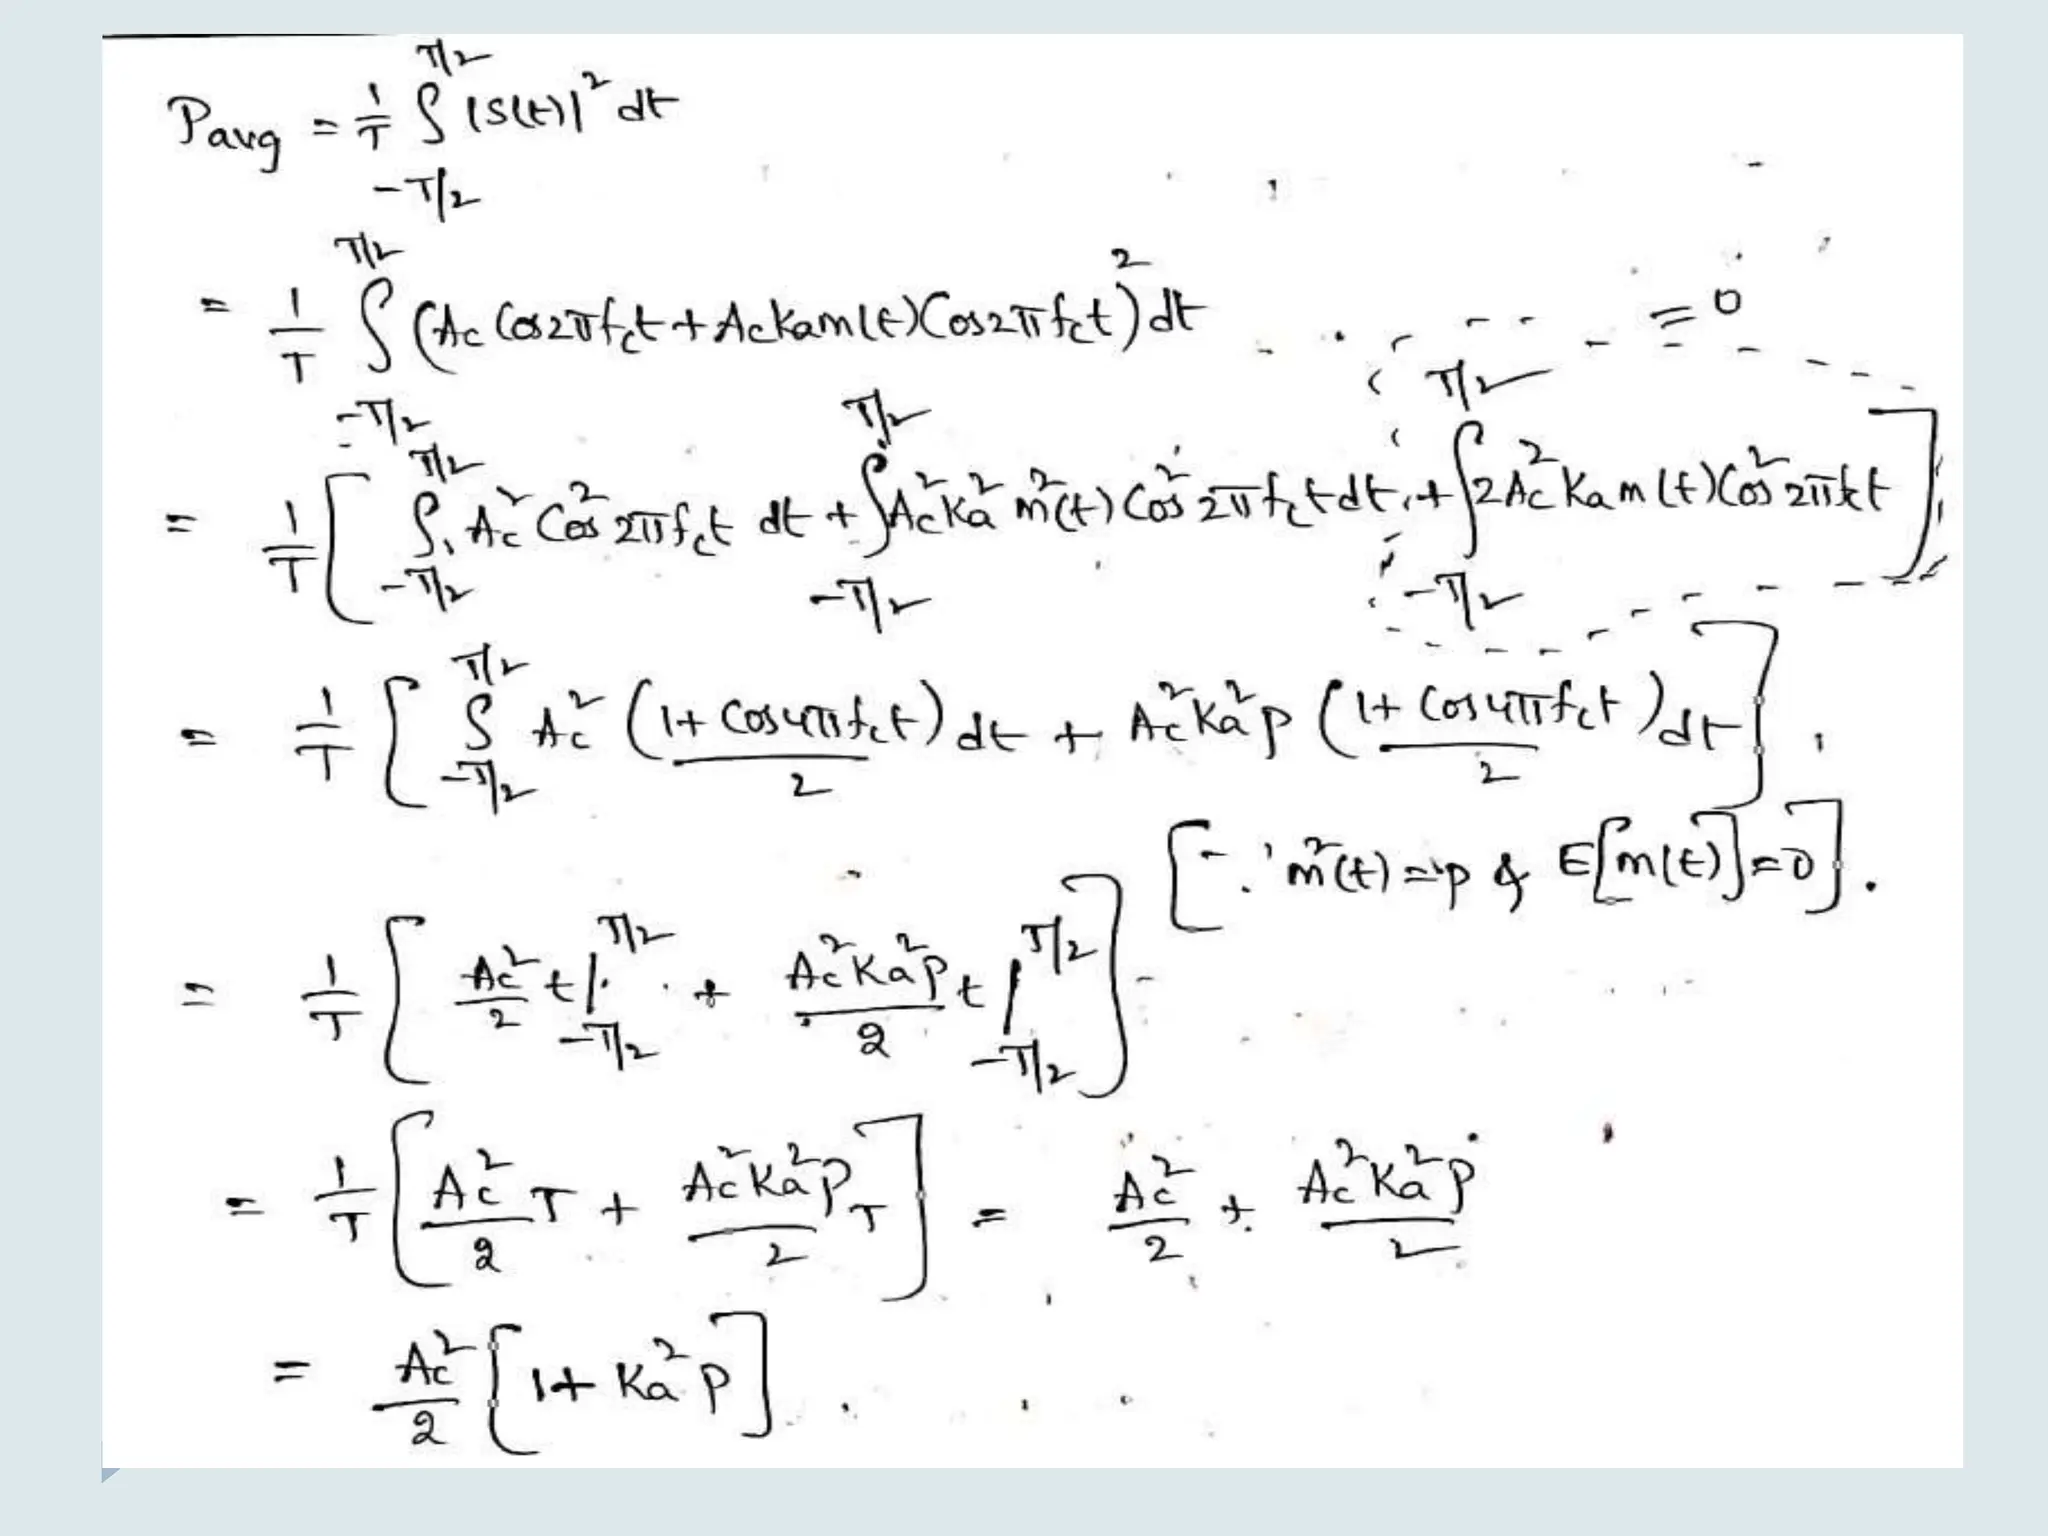 Pavg = 1/T ∫_{-T/2}^{T/2} |S(t)|² dt
= 1/T ∫_{-T/2}^{T/2} (Ac Cos2πfct + AcKam(t)Cos2πfct)² dt
= 0
= 1/T [ ∫_{-T/2}^{T/2} Ac² Cos²2πfct dt + ∫_{-T/2}^{T/2} Ac²Ka² m²(t) Cos²2πfct dt + ∫_{-T/2}^{T/2} 2Ac²Kam(t)Cos²2πfct ]
= 1/T [ ∫_{-T/2}^{T/2} Ac² (1+Cos4πfct)/2 dt + Ac²Ka²P (1+Cos4πfct)/2 dt ]
[∵ m²(t) = P & E[m(t)] = 0].
= 1/T [ Ac²/2 t |_{-T/2}^{T/2} + Ac²Ka²P/2 t |_{-T/2}^{T/2} ]
= 1/T [ Ac²/2 T + Ac²Ka²P/2 T ] = Ac²/2 + Ac²Ka²P/2
= Ac²/2 [1 + Ka²P].